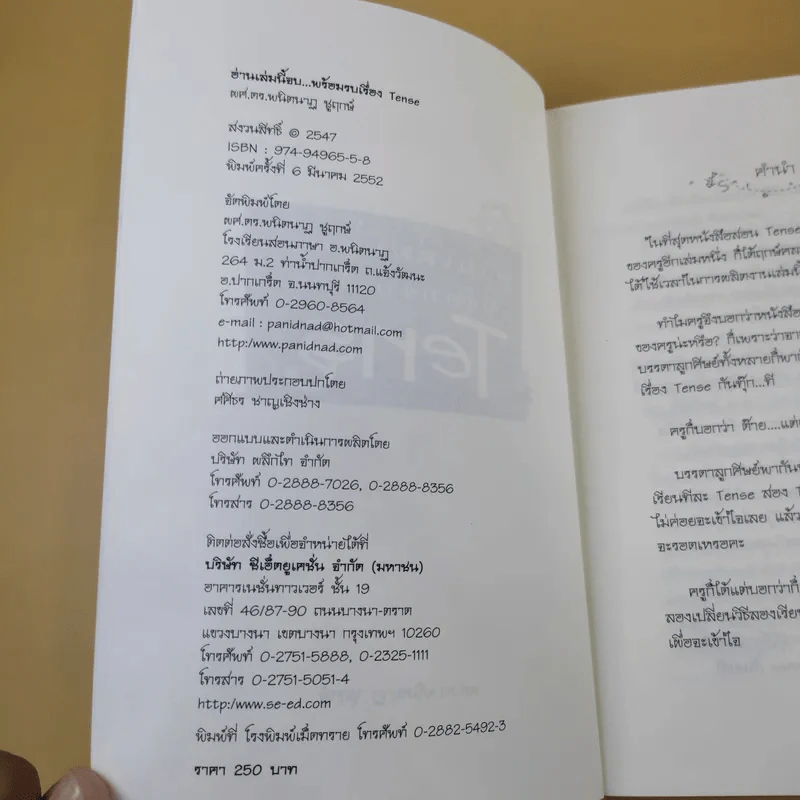 อ่านเล่มนี้จบ...พร้อมรบเรื่อง Tense
ผศ.ดร.พนิตนาฏ ชูฤกษ์
สงวนสิทธิ์ © 2547
ISBN : 974-94965-5-8
พิมพ์ครั้งที่ 6 มีนาคม 2552
จัดพิมพ์โดย
ผศ.ดร.พนิตนาฏ ชูฤกษ์
โรงเรียนสอนภาษา อ.พนิตนาฏ
264 ม.2 ท่าน้ำปากเกร็ด ถ.แจ้งวัฒนะ
อ.ปากเกร็ด จ.นนทบุรี 11120
โทรศัพท์ 0-2960-8564
e-mail : panidnad@hotmail.com
http:/www.panidnad.com
ถ่ายภาพประกอบปกโดย
ศศิธร ชาญเชิงช่าง
ออกแบบและดำเนินการผลิตโดย
บริษัท ผลึกไท จำกัด
โทรศัพท์ 0-2888-7026, 0-2888-8356
โทรสาร 0-2888-8356
ติดต่อสั่งซื้อเพื่อจำหน่ายได้ที่
บริษัท ซีเอ็ดยูเคชั่น จำกัด (มหาชน)
อาคารเนชั่นทาวเวอร์ ชั้น 19
เลขที่ 46/87-90 ถนนบางนา-ตราด
แขวงบางนา เขตบางนา กรุงเทพฯ 10260
โทรศัพท์ 0-2751-5888, 0-2325-1111
โทรสาร 0-2751-5051-4
http:/www.se-ed.com
พิมพ์ที่ โรงพิมพ์เม็ดทราย โทรศัพท์ 0-2882-5492-3
ราคา 250 บาท
คำนำ
ในที่สุดหนังสือสอน Tense
ของครูอีกเล่มหนึ่ง ก็ได้ฤกษ์คลอ
ได้ใช้เวลาในการผลิตงานเล่มนี้
ทำไมครูจึงบอกว่าหนังสือ
ของครูน่ะหรือ? ก็เพราะว่าอา
บรรดาลูกศิษย์ทั้งหลายก็พา
เรื่อง Tense กันทุ๊ก...ที
ครูก็บอกว่า ต๊าย....แต่
บรรดาลูกศิษย์พากัน
เรียนทีละ Tense สอง T
ไม่ค่อยจะเข้าใจเลย แล้ว
จะรอดเหรอคะ
ครูก็ได้แต่บอกว่าก็
ลองเปลี่ยนวิธีลองเรีย
เผื่อจะเข้าใจ